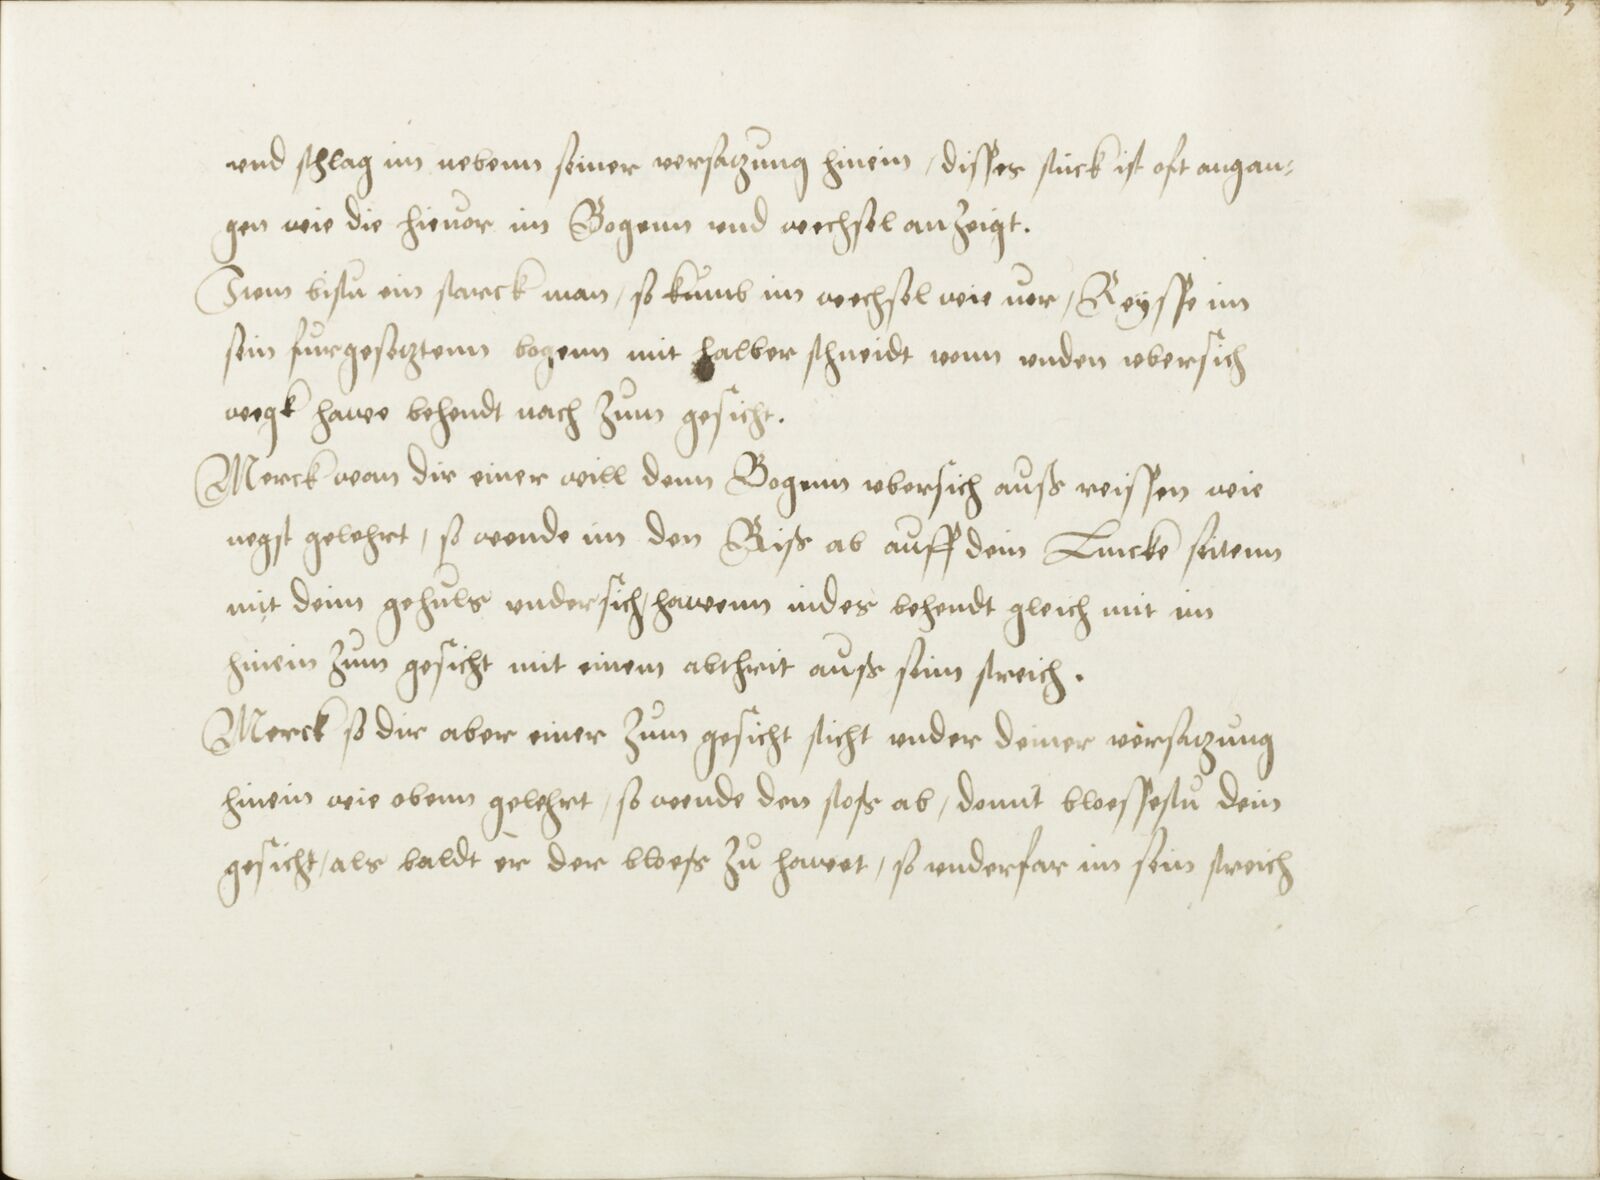 vnd schlag im nebenn seiner versatzung hinein / disses stuck ist oft angan⸗
gen wie die hieuor im Bogenn vnd wechsel anzeigt.
Item bistu ein starck man / so kumb im wechsel wie uor / Reysse im
sein furgesetztenn bogenn mit halber schneidt vonn vnden vbersich
wegk hawe behendt nach zum gesicht.
Merck wan dir einer will denn Bogenn vbersich auß reissen wie
negst gelehrt / so wende im den Riß ab auff dein Lincke seitenn
mit deim gehuls vndersich / hawenn indes behendt gleich mit im
hinein zum gesicht mit einem abthrit auß seim streich.
Merck so dir aber einer zum gesicht sticht vnder deiner versatzung
hinein wie obenn gelehrt / so wende den stoß ab / domit bloessestu dein
gesicht / als baldt er der bloeß zu hawet / so vnderfar im sein streich